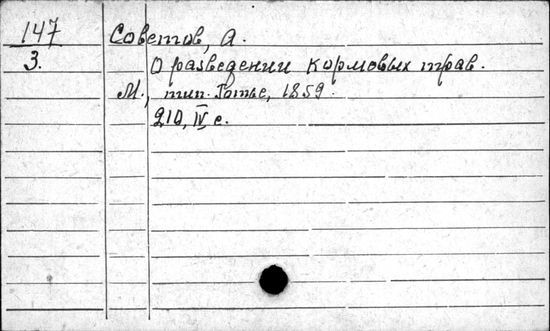 147
3.
Советов, А.
О разведении кормовых трав.
М., тип. Готье, 1859.
210, IV с.